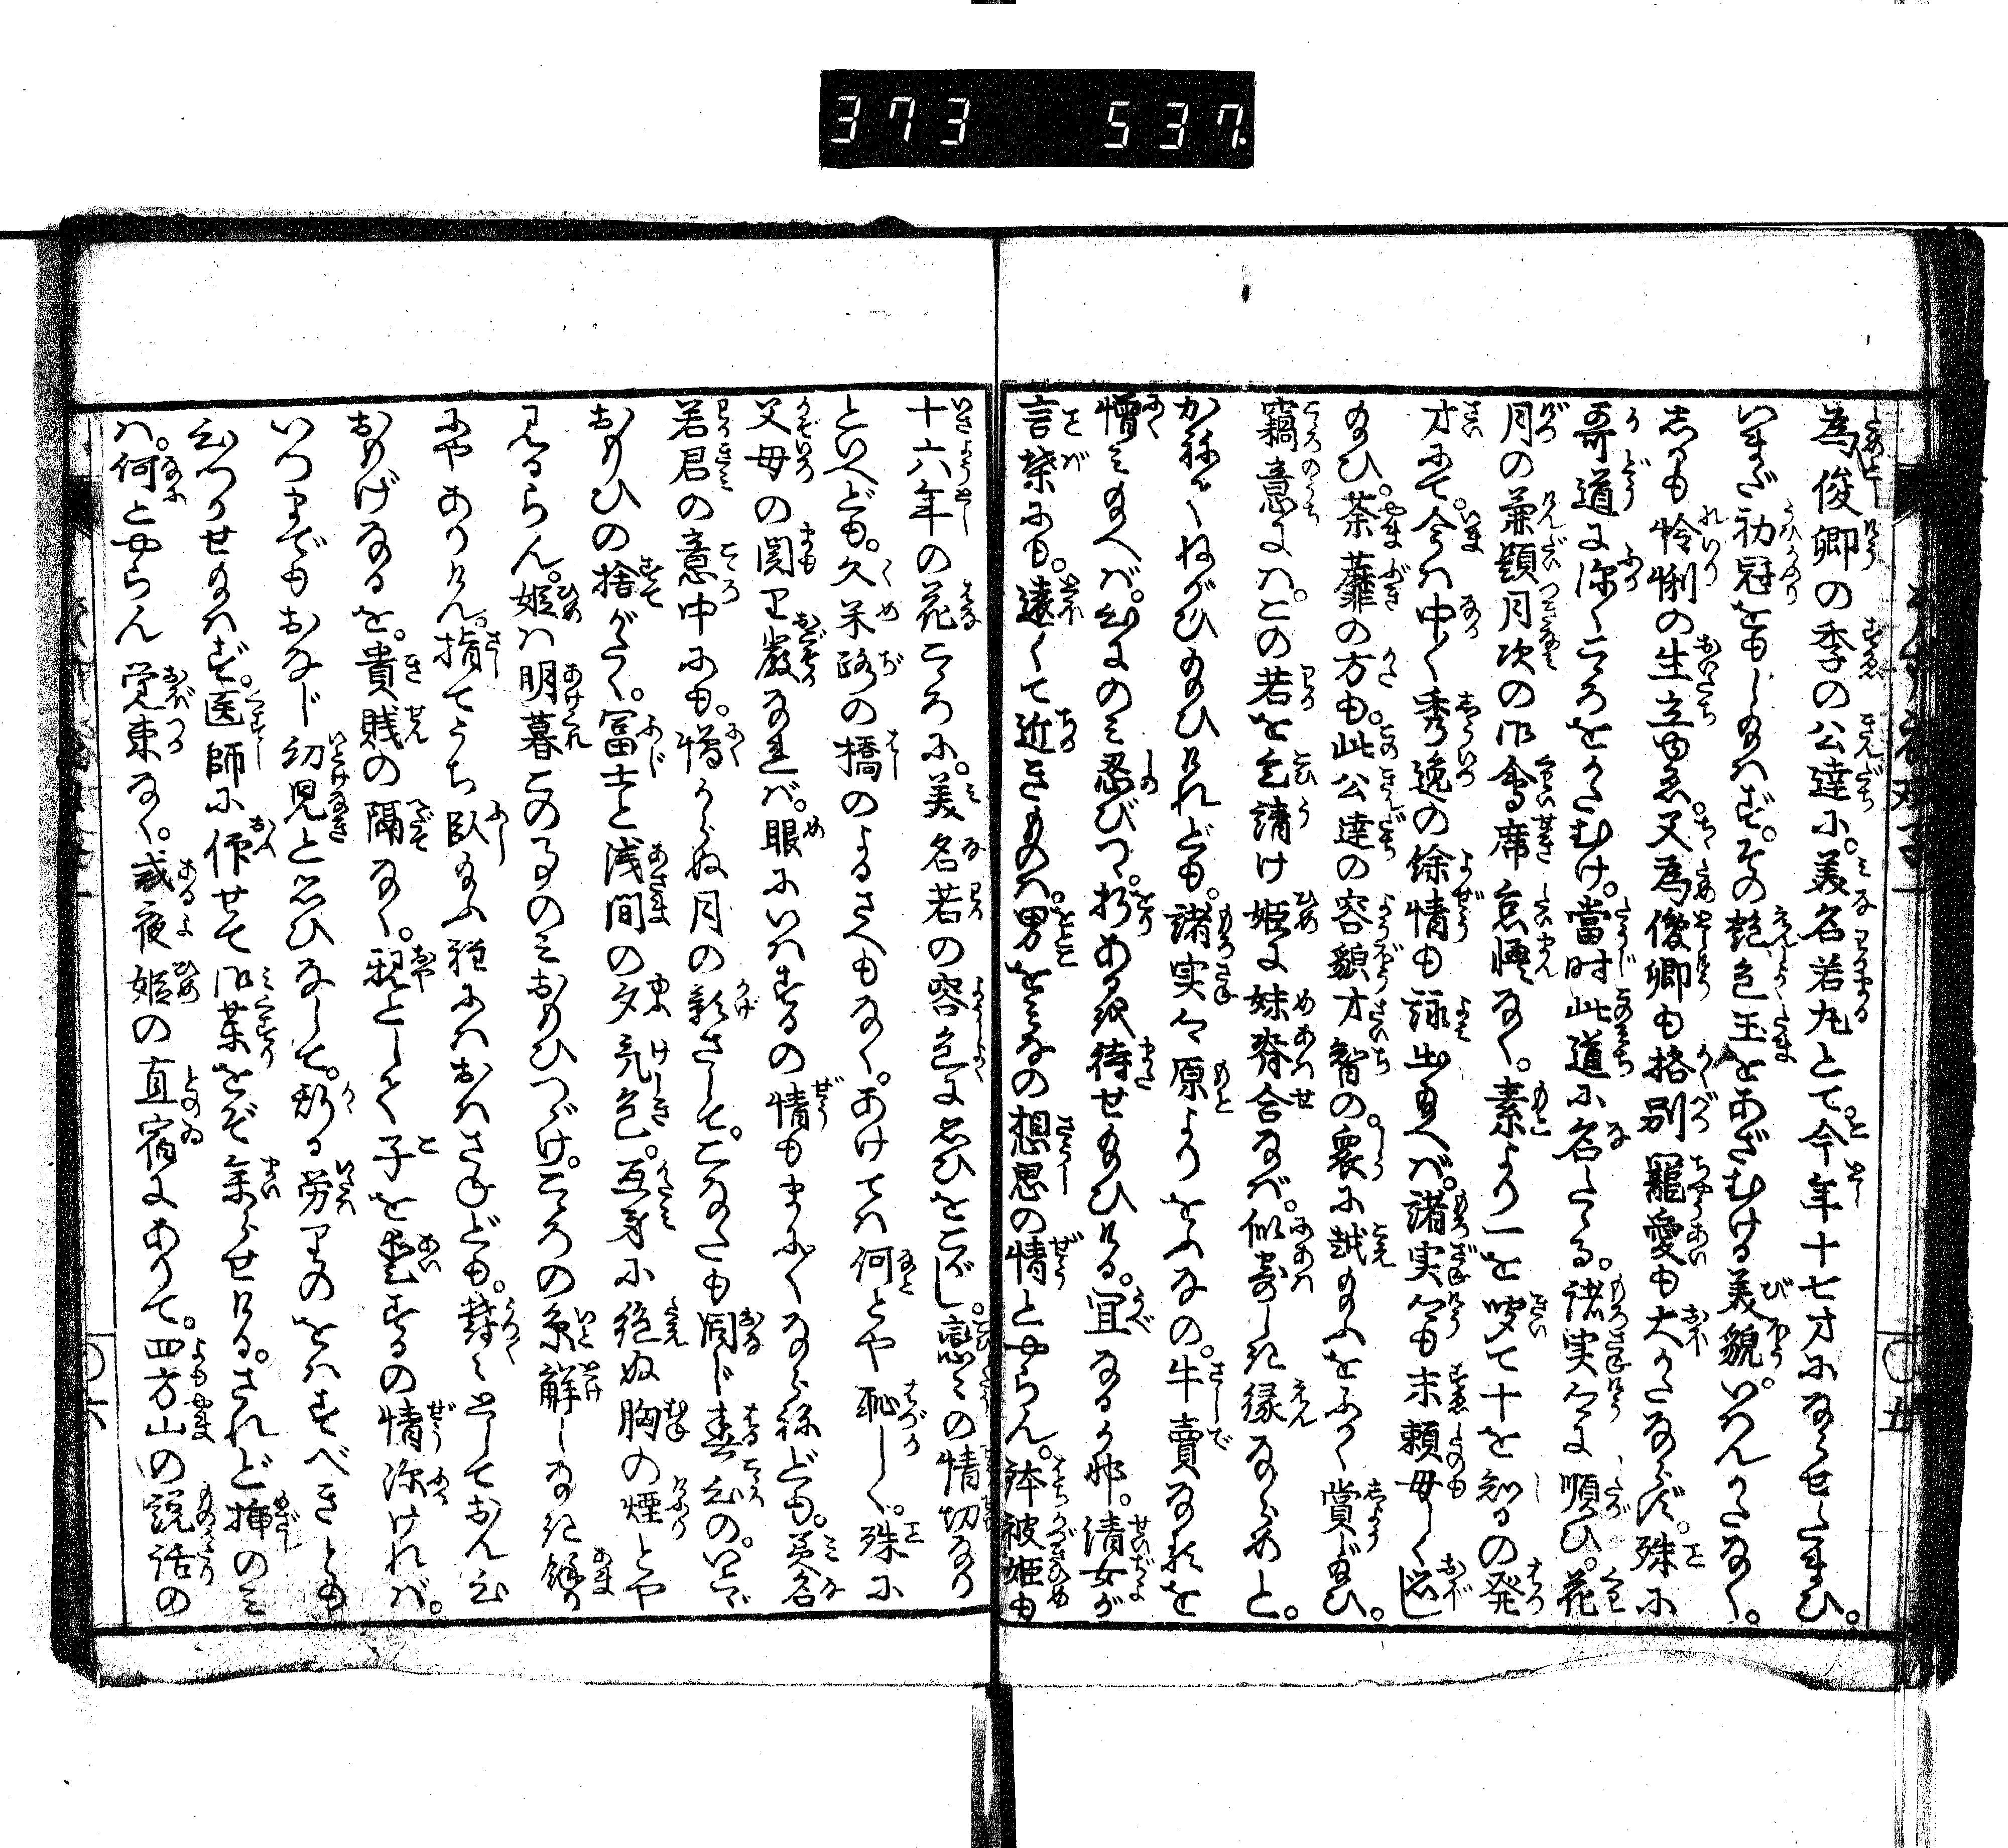 373 537
為俊卿の季の公達に。美名若丸とて。今年十七才にならせたまひ。
いまだ初冠をもしたまはず。その艶色玉をあざむける美貌。いはんかたなく。
しかも怜悧の生立ゆゑ。父為俊卿も格別寵愛も大かたならず。殊に
哥道に深くこゝろをかたむけ。當时此道に名たゝる。諸実卿に順ひ。花
月の兼題月次の御會席怠慢なく。素より一を聞て十を知るの発
才にて。今は中〳〵秀逸の餘情も詠出給へば。諸実卿も末頼母しく思し
給ひ。荼蘼の方も。此公達の容貌才智の。衆に越給ふをふかく賞し給ひ。
竊意には。この若を乞請け姫に妹脊合なば。似寄しき縁ならめと。
かねてねがひ給ひけれども。諸実卿原よりをみなの。牛賣なるを
憎み給へば。心にのみ忍びつ。折あるを待せ給ひける。宜なるか那。清女が
言葉にも。遠くて近きものは。男をみなの想思の情とやらん。鉢被姫も
十六年の花ごろに。美名若の容色に思ひをこがし。恋しの情切なり
といへども。久米路の橋のよるさへもなく。あけては何とや恥しく。殊に
父母の関の嚴なれば。眼にいはするの情もまゝならねども。美名
若君の意中にも。憎からぬ月の影さして。こなたも同じ春心の。いとゞ
おもひの捨がたく。冨士と浅間の夕氣色。互身に絶ぬ胸の煙とや
見るらん。姫は明暮この事のみおもひつゞけ。こゝろの糸解しなき餘り
にやありけん。指てうち臥給ふ程にはおはさねども。鬱々としておん心
おもげなるを。貴賤の隔なく。親として子を愛するの情深ければ。
いつまでもおなじ幼児と思ひなして。斯る労りのをはすべきとも
心つかせ給はず。医師に仰せて御薬をぞ参らせける。されど挿のみ
は。何とやらん覚束なく。或夜姫の直宿にありて。四方山の説話の